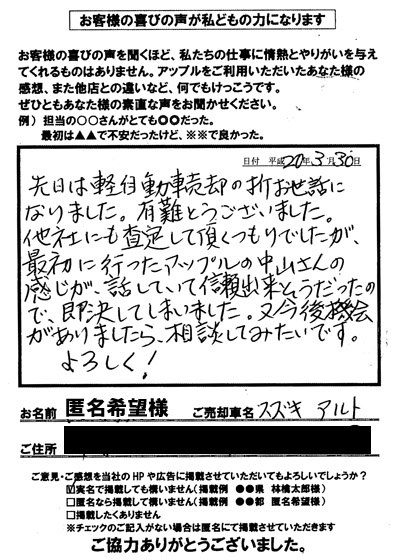 お客様の喜びの声が私どもの力になります
お客様の喜びの声を聞くほど、私たちの仕事に情熱とやりがいを与え
てくれるものはありません。アップルをご利用いただいたあなた様の
感想、また他店との違いなど、何でもけっこうです。
ぜひともあなた様の素直な声をお聞かせください。
例）担当の○○さんがとても○○だった。
最初は▲▲で不安だったけど、※※で良かった。
日付 平成 20年 3月 30日
先日は軽自動車売却の折お世話に
なりました。有難とうございました。
他社にも査定して頂くつもりでしたが、
最初に行ったアップルの中山さんの
感じが、話していて信頼出来そうだったの
で、即決してしまいました。又今後機会
がありましたら、相談してみたいです。
よろしく！
お名前 匿名希望様 ご売却車名 スズキ アルト
ご住所
ご意見・ご感想を当社のHPや広告に掲載させていただいてもよろしいでしょうか？
☑実名で掲載しても構いません（掲載例 ●●県 林檎太郎様）
□匿名なら掲載して構いません（掲載例 ●●都 匿名希望様）
□掲載したくありません
※チェックのご記入がない場合は匿名にて掲載させていただきます
ご協力ありがとうございました。